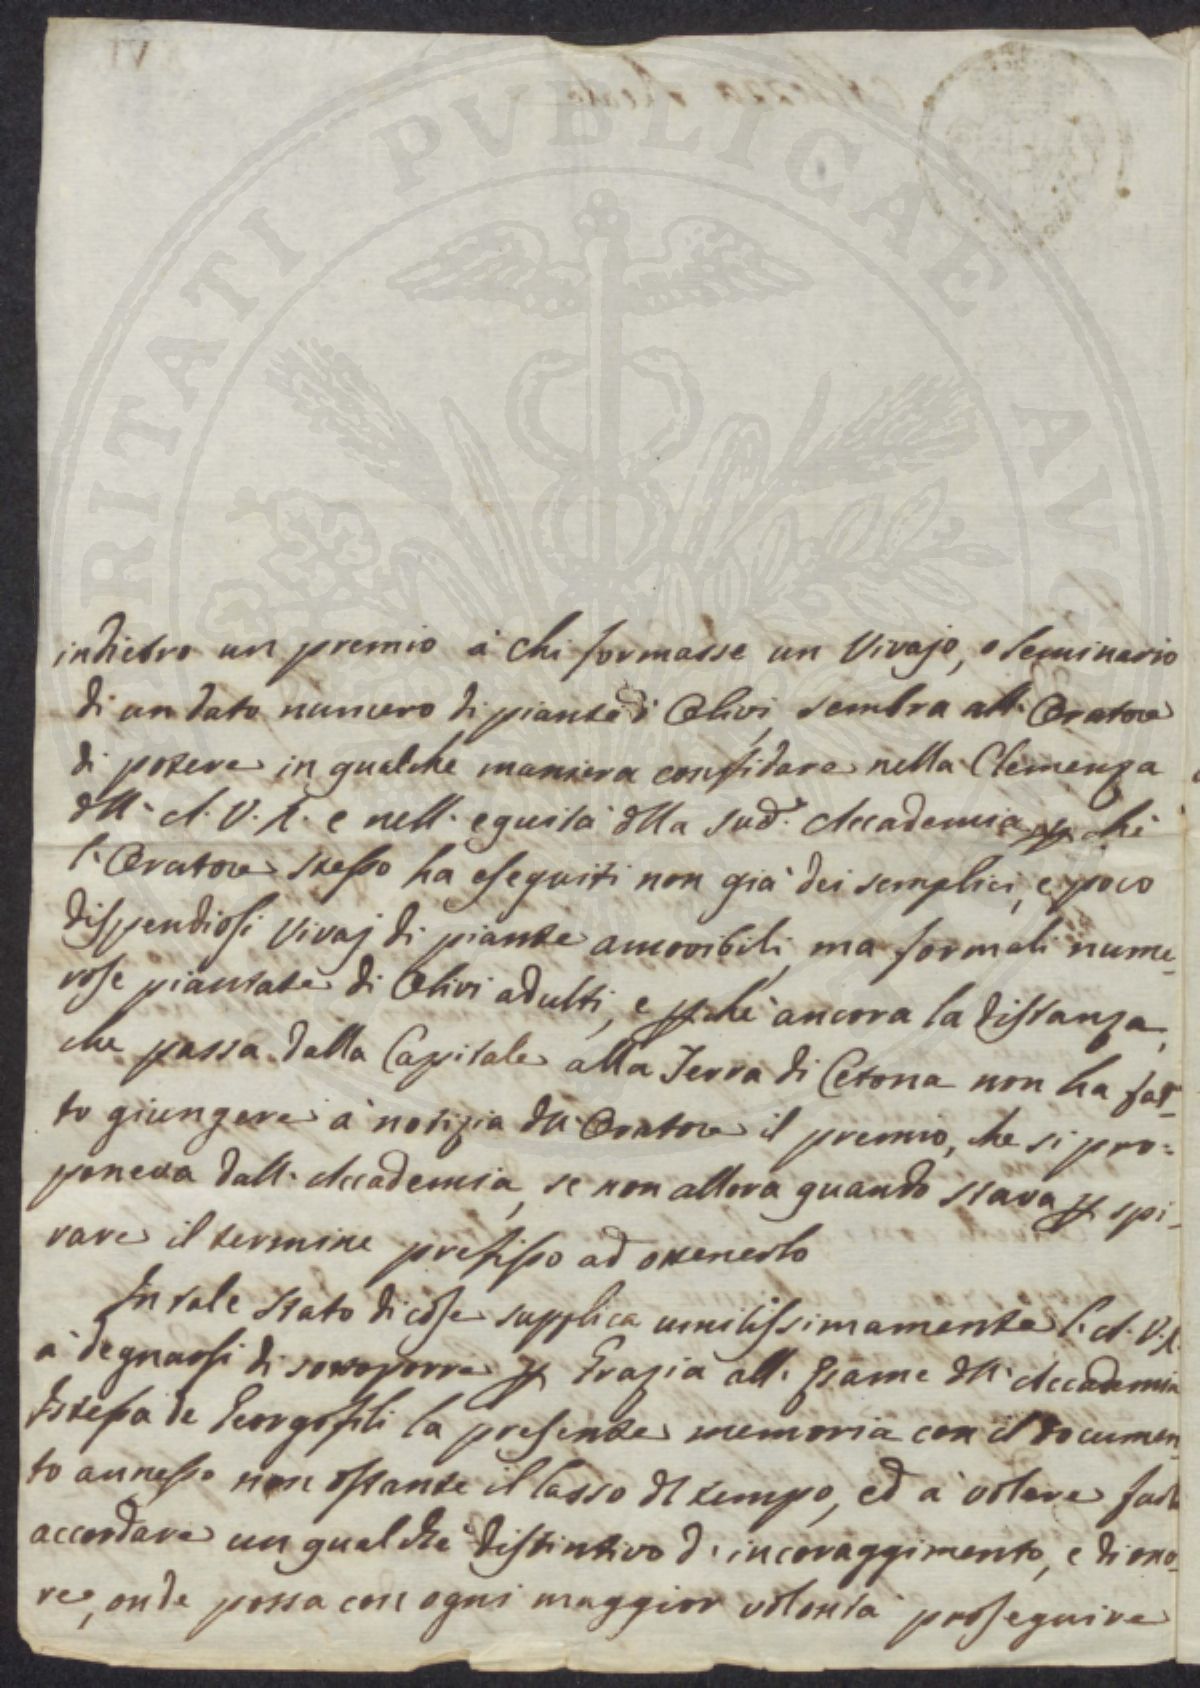 PVBLICAE
RITATI
AVG
indietro un premio à chi formasse un Vivajo, o Seminario
di un dato numero di piante d' Olivi, sembra all' Oratore
di potere in qualche maniera confidare nella Clemenza
dll' A. V. R. e nell' equità dlla sud.ª Accademia pchè
l' Oratore stesso ha eseguiti non già dei semplici, e poco
dispendiosi Vivaj di piante amovibili, ma formali nume-
rose piantate di Olivi adulti, e pchè ancora la distanza,
che passa dalla Capitale alla Terra di Cetona non ha fat-
to giungere à notizia dll' Oratore il premio, che si pro=
poneva dall' Accademia, se non allora quando stava p spi-
rare il termine prefisso ad ottenerlo
In tale stato di cose supplica umilissimamente l' A. V. R.
à degnarsi di sottoporre p Grazia all' Esame dll' Accademia
Istessa de Georgofili la presente memoria con il documen
to annesso non ostante il lasso dl tempo, ed à volere farli
accordare un qualche distintivo d' incoraggimento, e di ono-
re, onde possa con ogni maggior volontà proseguire